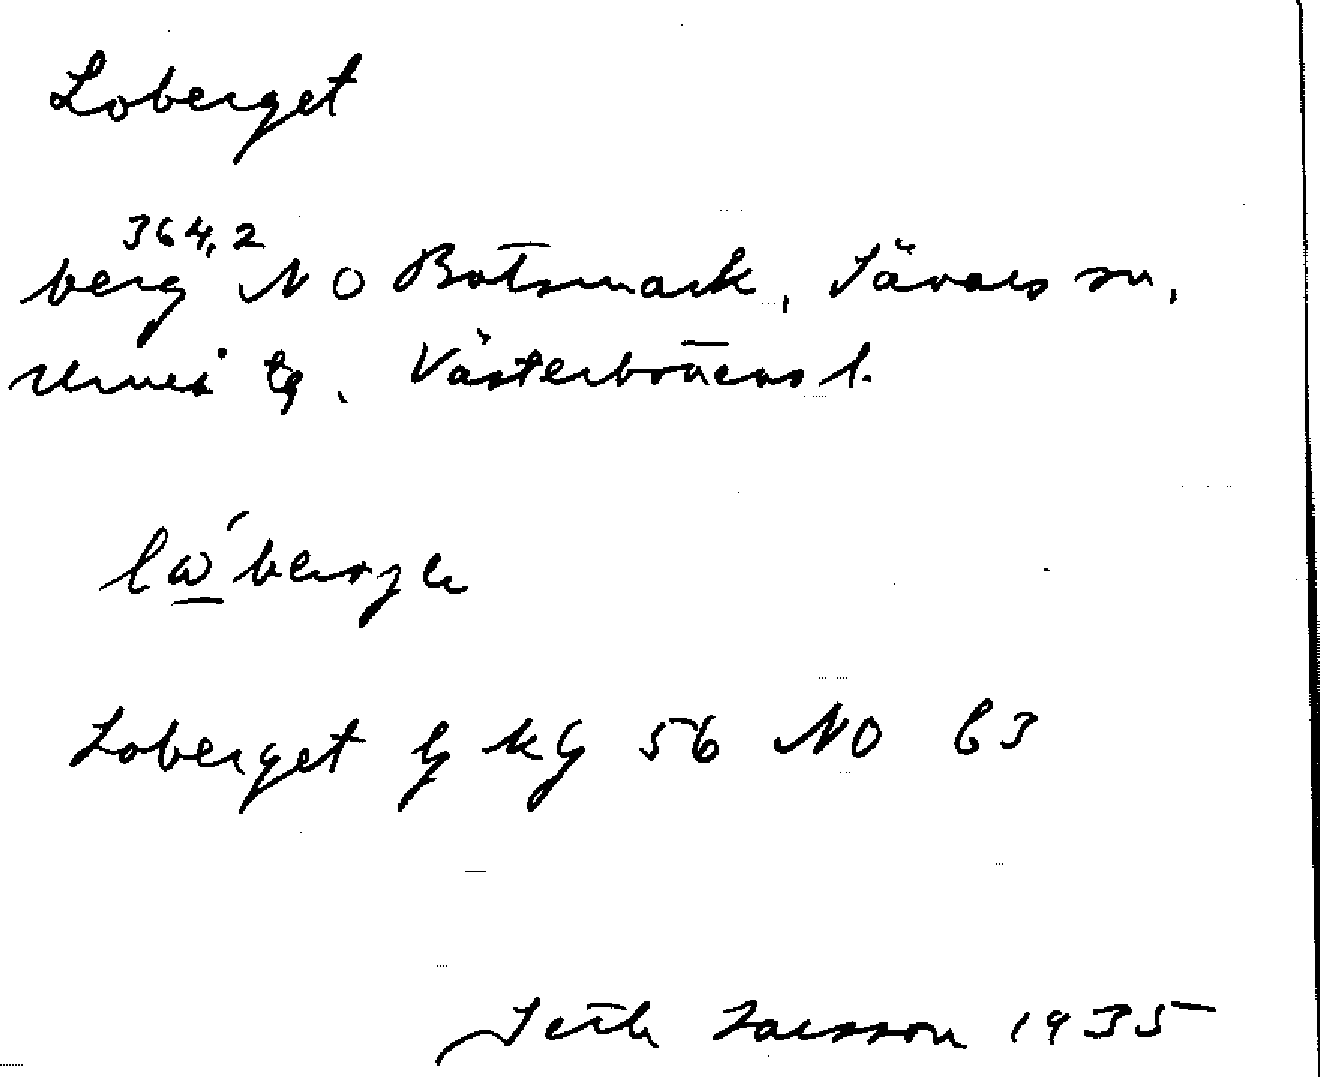 Loberget
berg 364,2 NO Botsmark, Sävars sn,
Umeå tg. Västerbottens l.
lώ̲bergɘ
Loberget G kG 56 NO b3
Seth Larsson 1935